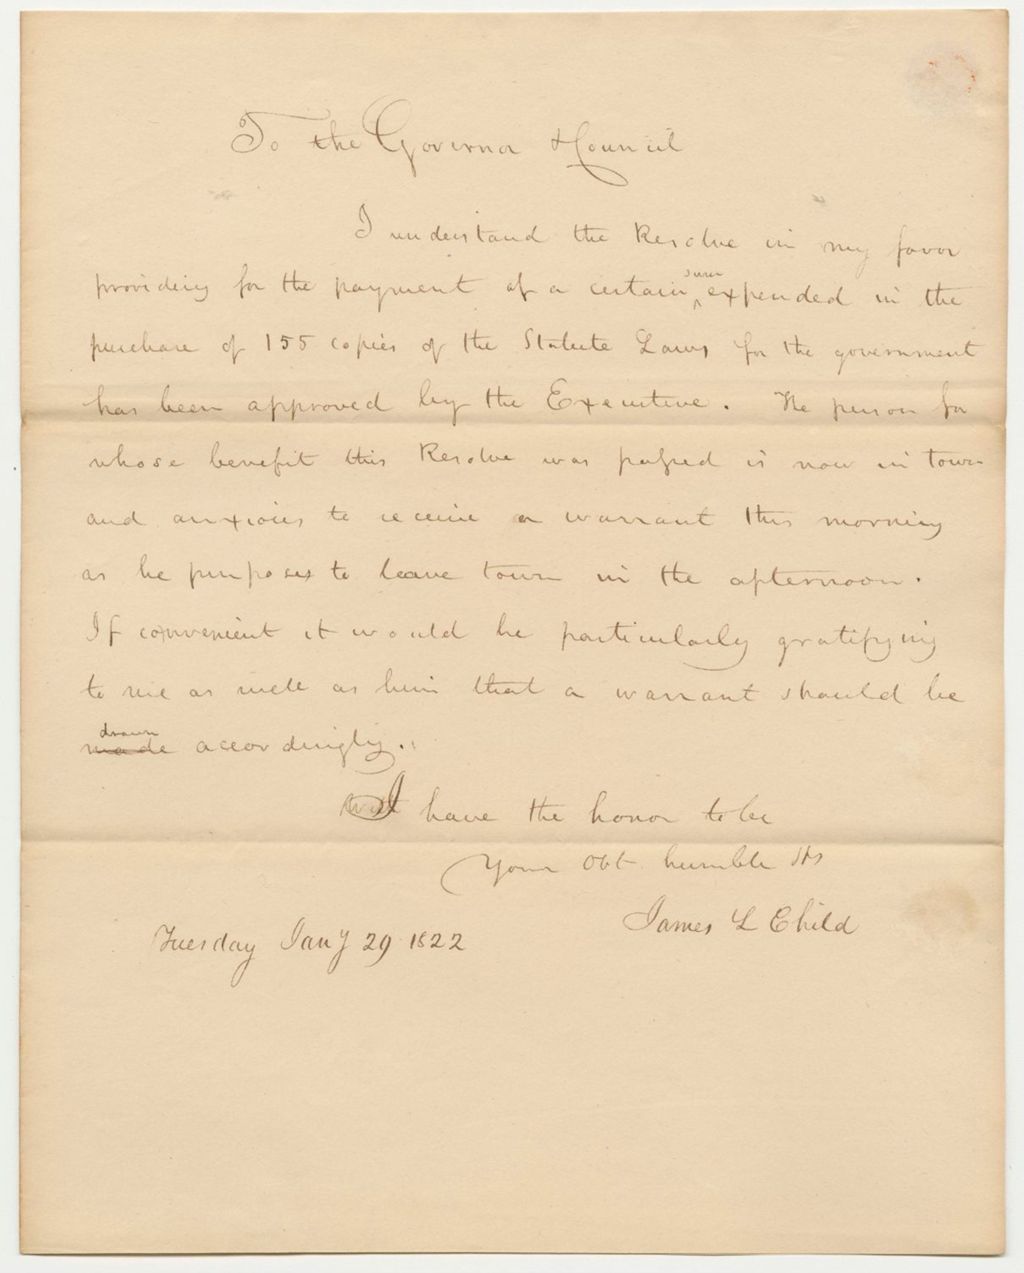 To the Governor & Council
I understand the Resolve in my favor
providing for the payment of a certain sum expended in the
purchase of 155 copies of the Statute Laws for the government
has been approved by the Executive. The person for
whose benefit this Resolve was passed is now in town
and anxious to receive a warrant this morning
as he purposes to leave town in the afternoon.
If convenient it would be particularly gratifying
to me as well as him that a warrant should be
made drawn accordingly.
I have the honor to be
Your Obt humble
James L Child
Tuesday Jany 29 1822